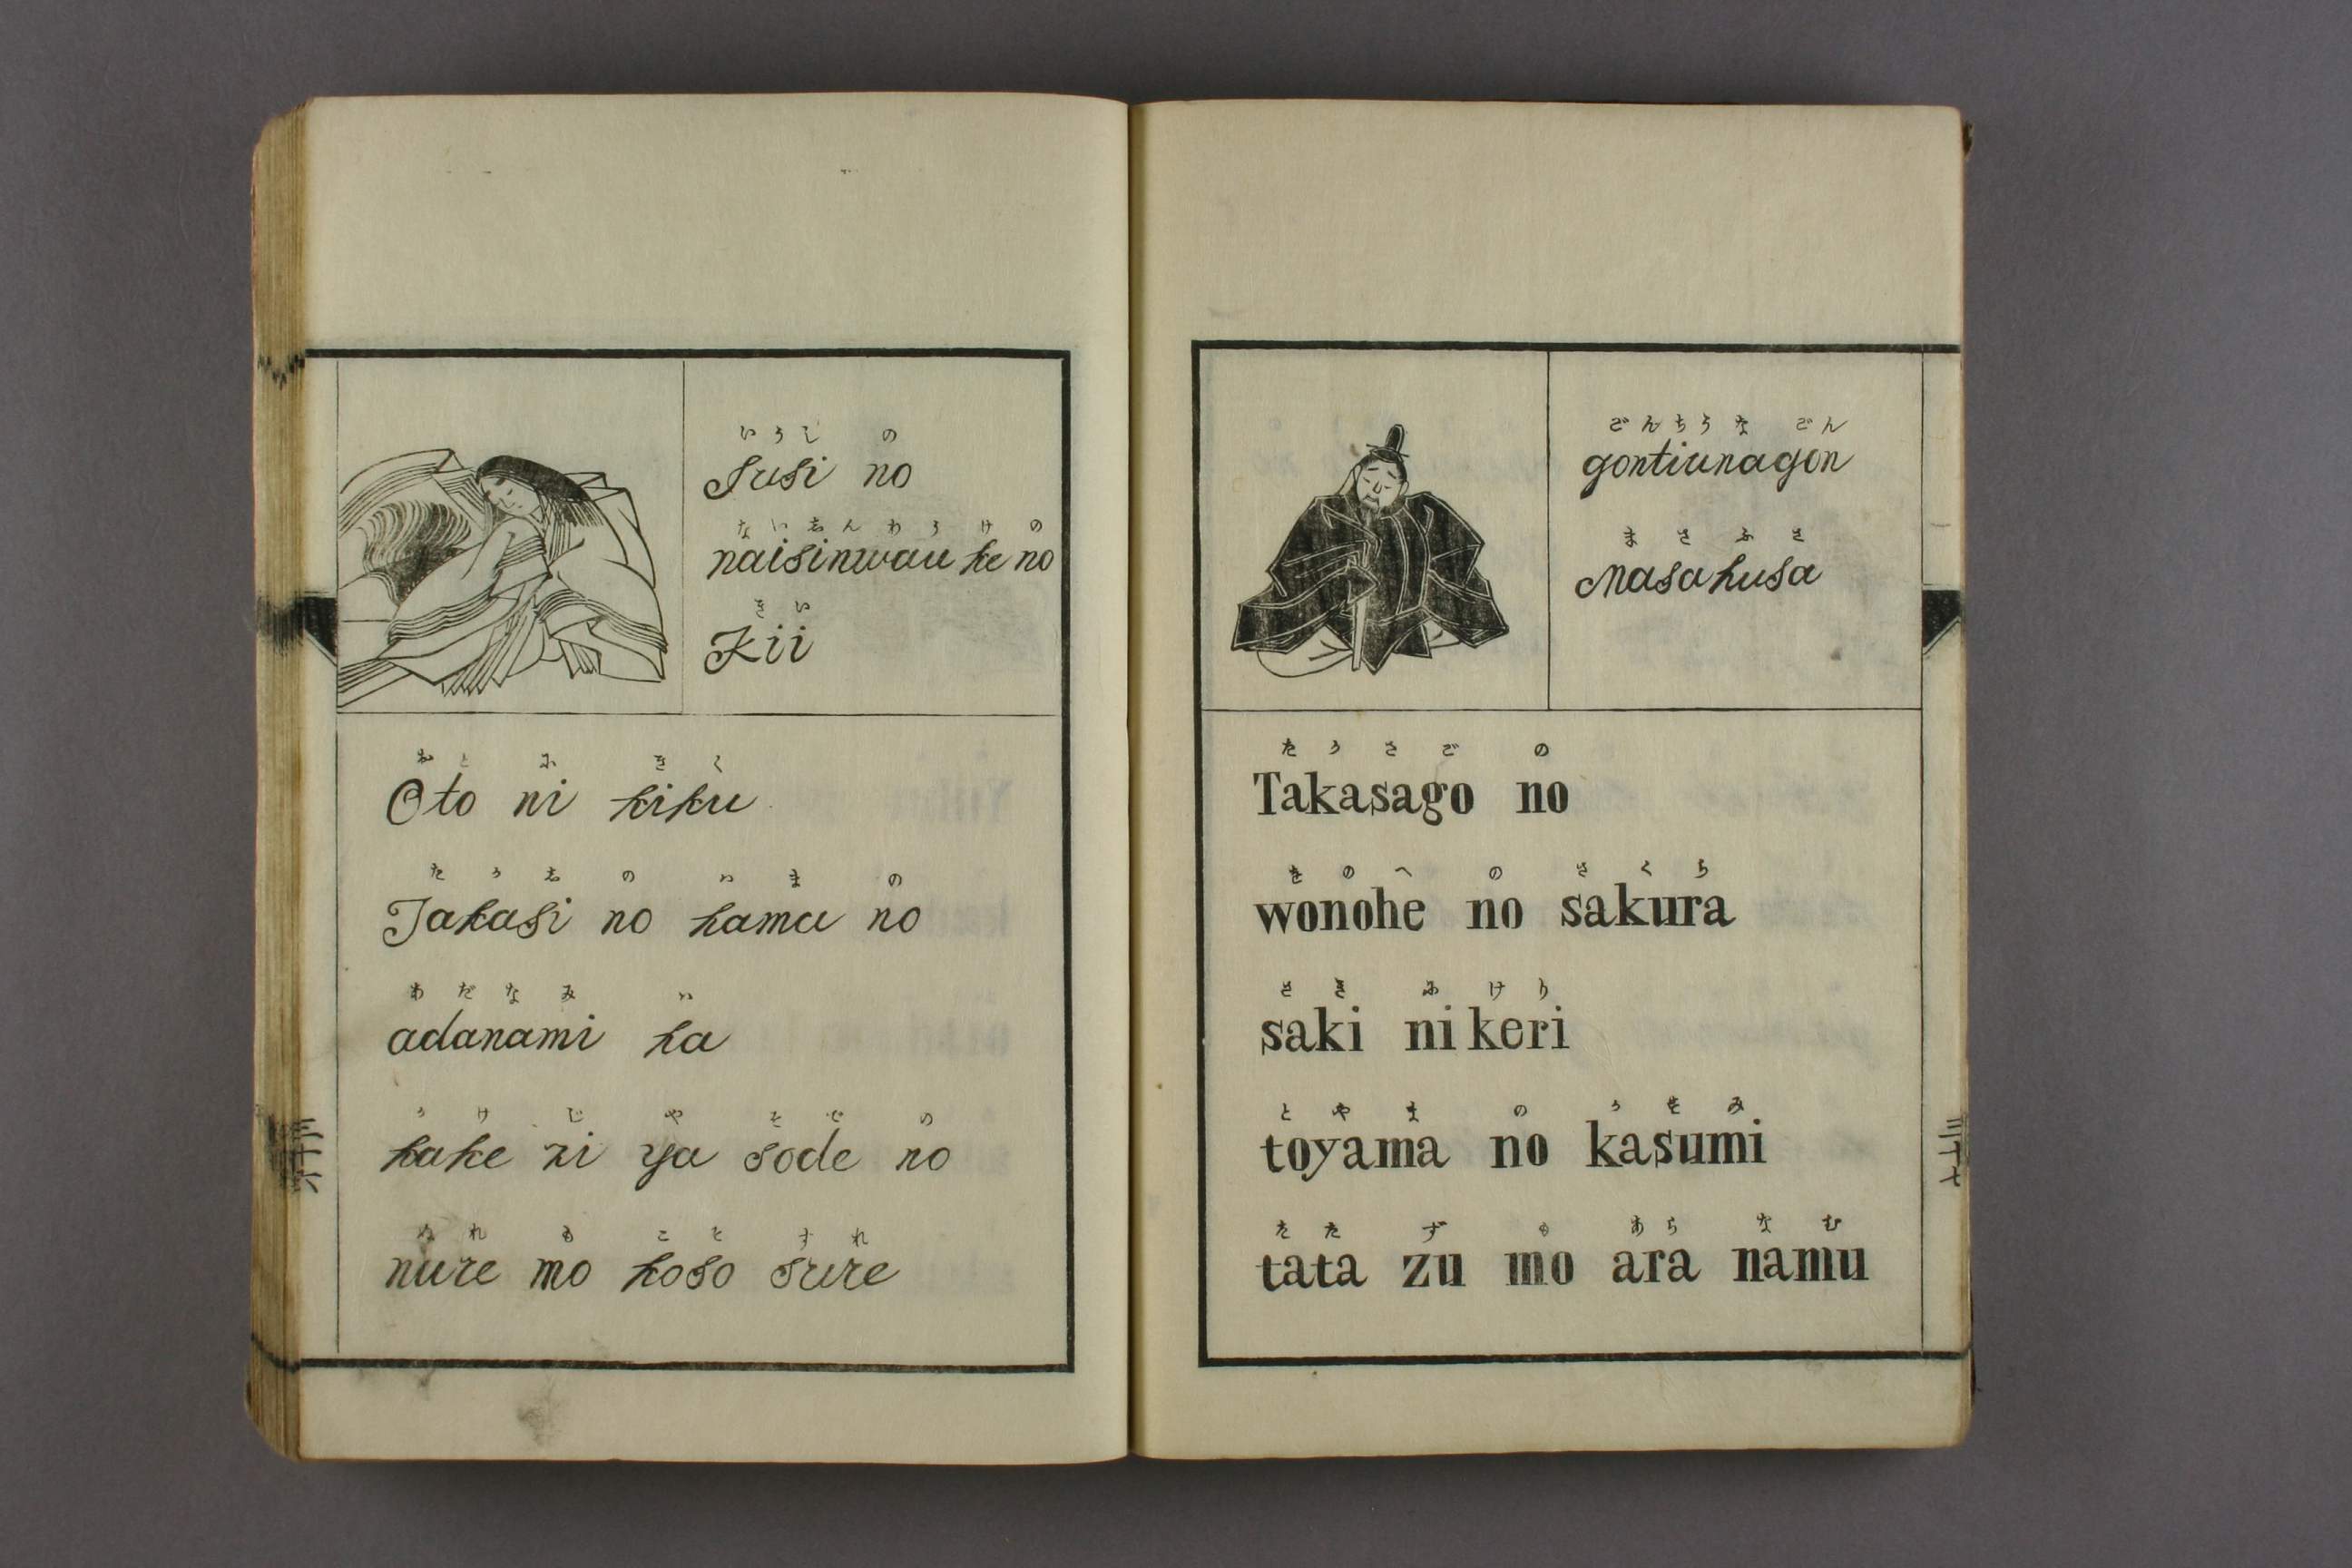 いうし の
Iusi no
ないしんわうけの
naisinwau ke no
きい
Kii
おと に きく
Oto ni kiku
たかし の はま の
Takasi no hama no
あだなみ は
adanami ha
かけ じ や そで の
kake zi ya sode no
ぬれ も こそ すれ
nure mo koso sure
三十六
ごんちうな ごん
gontiunagon
まさふさ
Masahusa
たかさご の
Takasago no
をのへ の さくら
wonohe no sakura
さき に けり
saki ni keri
とやま の かすみ
toyama no kasumi
たた ず も あら なむ
tata zu mo ara namu
三十七